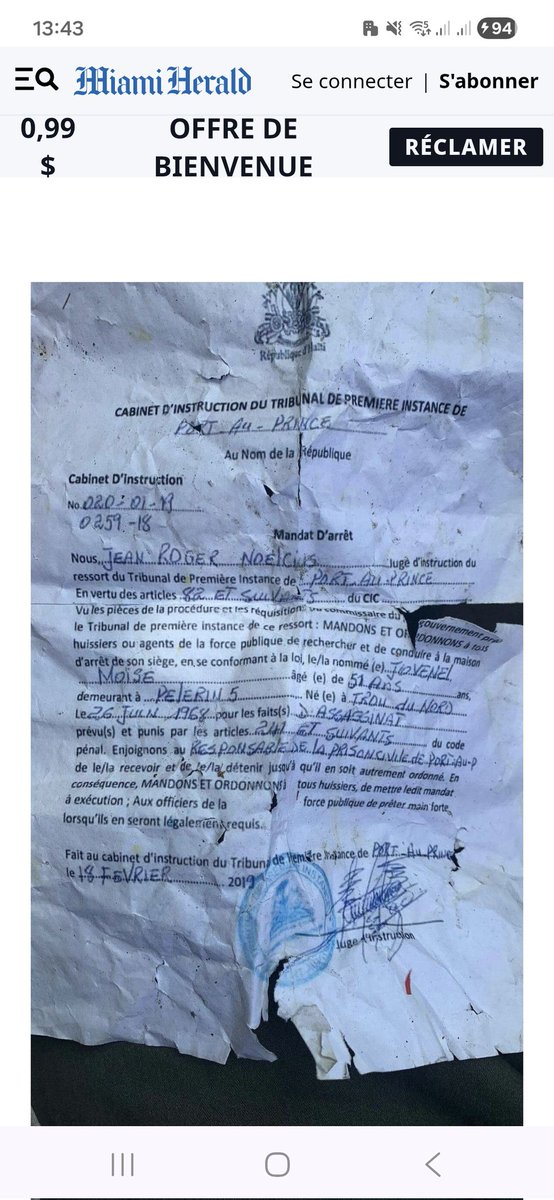 13:43
94
Miami Herald
Se connecter | S'abonner
0,99 $
OFFRE DE BIENVENUE
RÉCLAMER
République d'Haïti
CABINET D'INSTRUCTION DU TRIBUNAL DE PREMIERE INSTANCE DE
PORT-AU-PRINCE
Au Nom de la République
Cabinet D'Instruction
No. 020-01-19
0259-18
Mandat D'arrêt
Nous, JEAN ROGER NOELCIUS Juge d'instruction du
ressort du Tribunal de Première Instance de PORT AU PRINCE
En vertu des articles 82 ET SUIVANTS du CIC
Vu les pièces de la procédure et les réquisitions du commissaire du gouvernement près
le Tribunal de première instance de ce ressort : MANDONS ET ORDONNONS à tous
huissiers ou agents de la force publique de rechercher et de conduire à la maison
d'arrêt de son siège, en se conformant à la loi, le/la nommé (e) JOVENEL
MOISE âgé (e) de 51 ANS ans,
demeurant à PELERIN 5 Né (e) à TROU DU NORD
Le 26 JUIN 1968 pour les faits(s) D'ASSASSINAT
prévu(s) et punis par les articles 241 ET SUIVANTS du code
pénal. Enjoignons au RESPONSABLE DE LA PRISON CIVILE DE PORT-AU-P
de le/la recevoir et de le/la détenir jusqu'à qu'il en soit autrement ordonné. En
conséquence, MANDONS ET ORDONNONS tous huissiers, de mettre ledit mandat
à exécution ; Aux officiers de la force publique de prêter main forte,
lorsqu'ils en seront légalement requis.
Fait au cabinet d'instruction du Tribunal de Première Instance de PORT-AU-PRINCE
le 18 FEVRIER 2019
Juge d'instruction